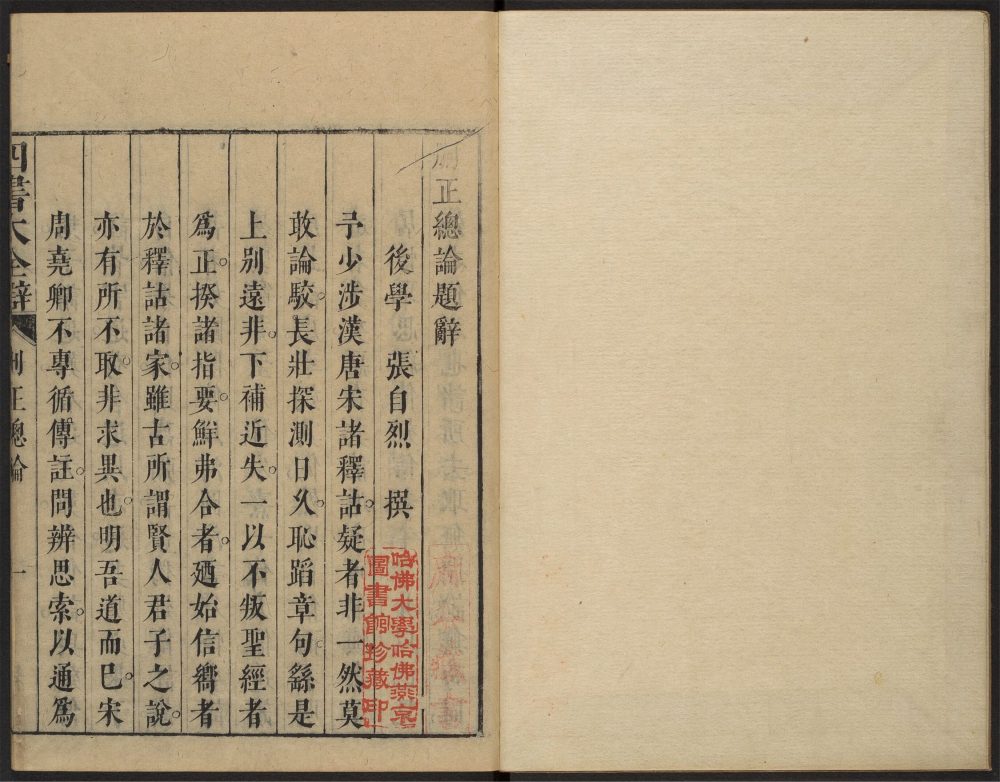 刪正總論題辭
後學 張自烈 撰
予少涉漢唐宋諸釋詁疑者非一然莫
敢論駁長壯探測日久恥蹈章句繇是
上別遠非下補近失一以不叛聖經者
爲正揆諸指要鮮弗合者廼始信嚮者
於釋詁諸家雖古所謂賢人君子之說
亦有所不取非求異也明吾道而已宋
周堯卿不專循傳註問辨思索以通爲
四書大全辯 刪正總論 一
哈佛大學哈佛燕京
圖書館珍藏印